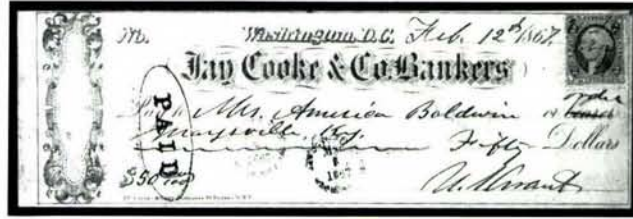 No. Washington, D.C. Feb. 12th 1867
Jay Cooke & Co. Bankers
PAID
Mrs. America Baldwin or order
Maysville, Ky.
Fifty Dollars
$50
U.S. Grant